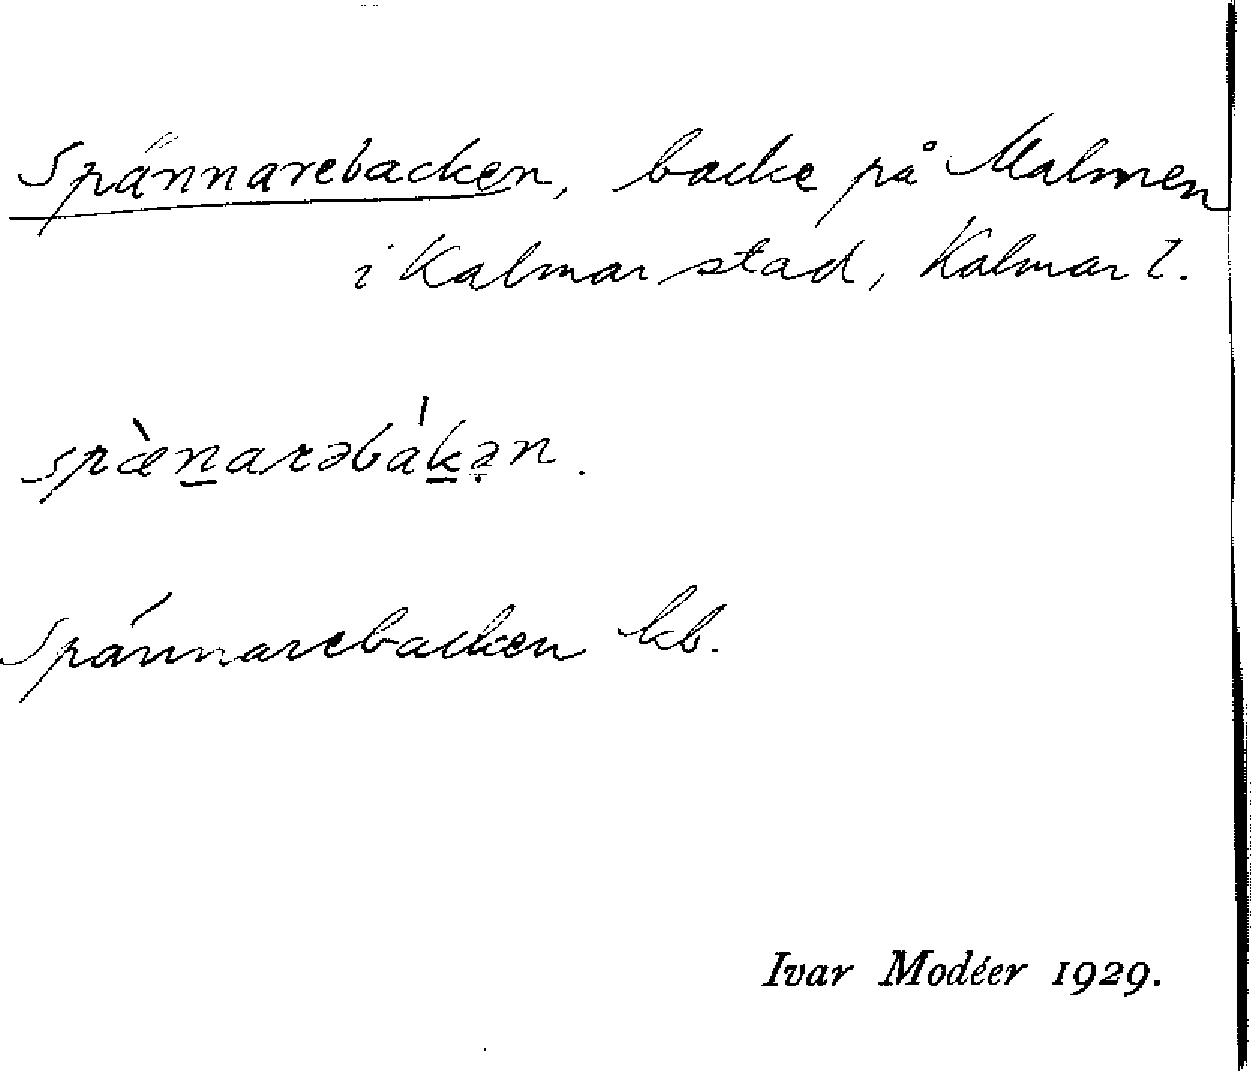 Spännarebacken, backe på Malmen
i Kalmar stad, Kalmar l.
spæ̀n̲arəbák̲ə̣n.
Spännarebacken kb.
Ivar Modéer 1929.